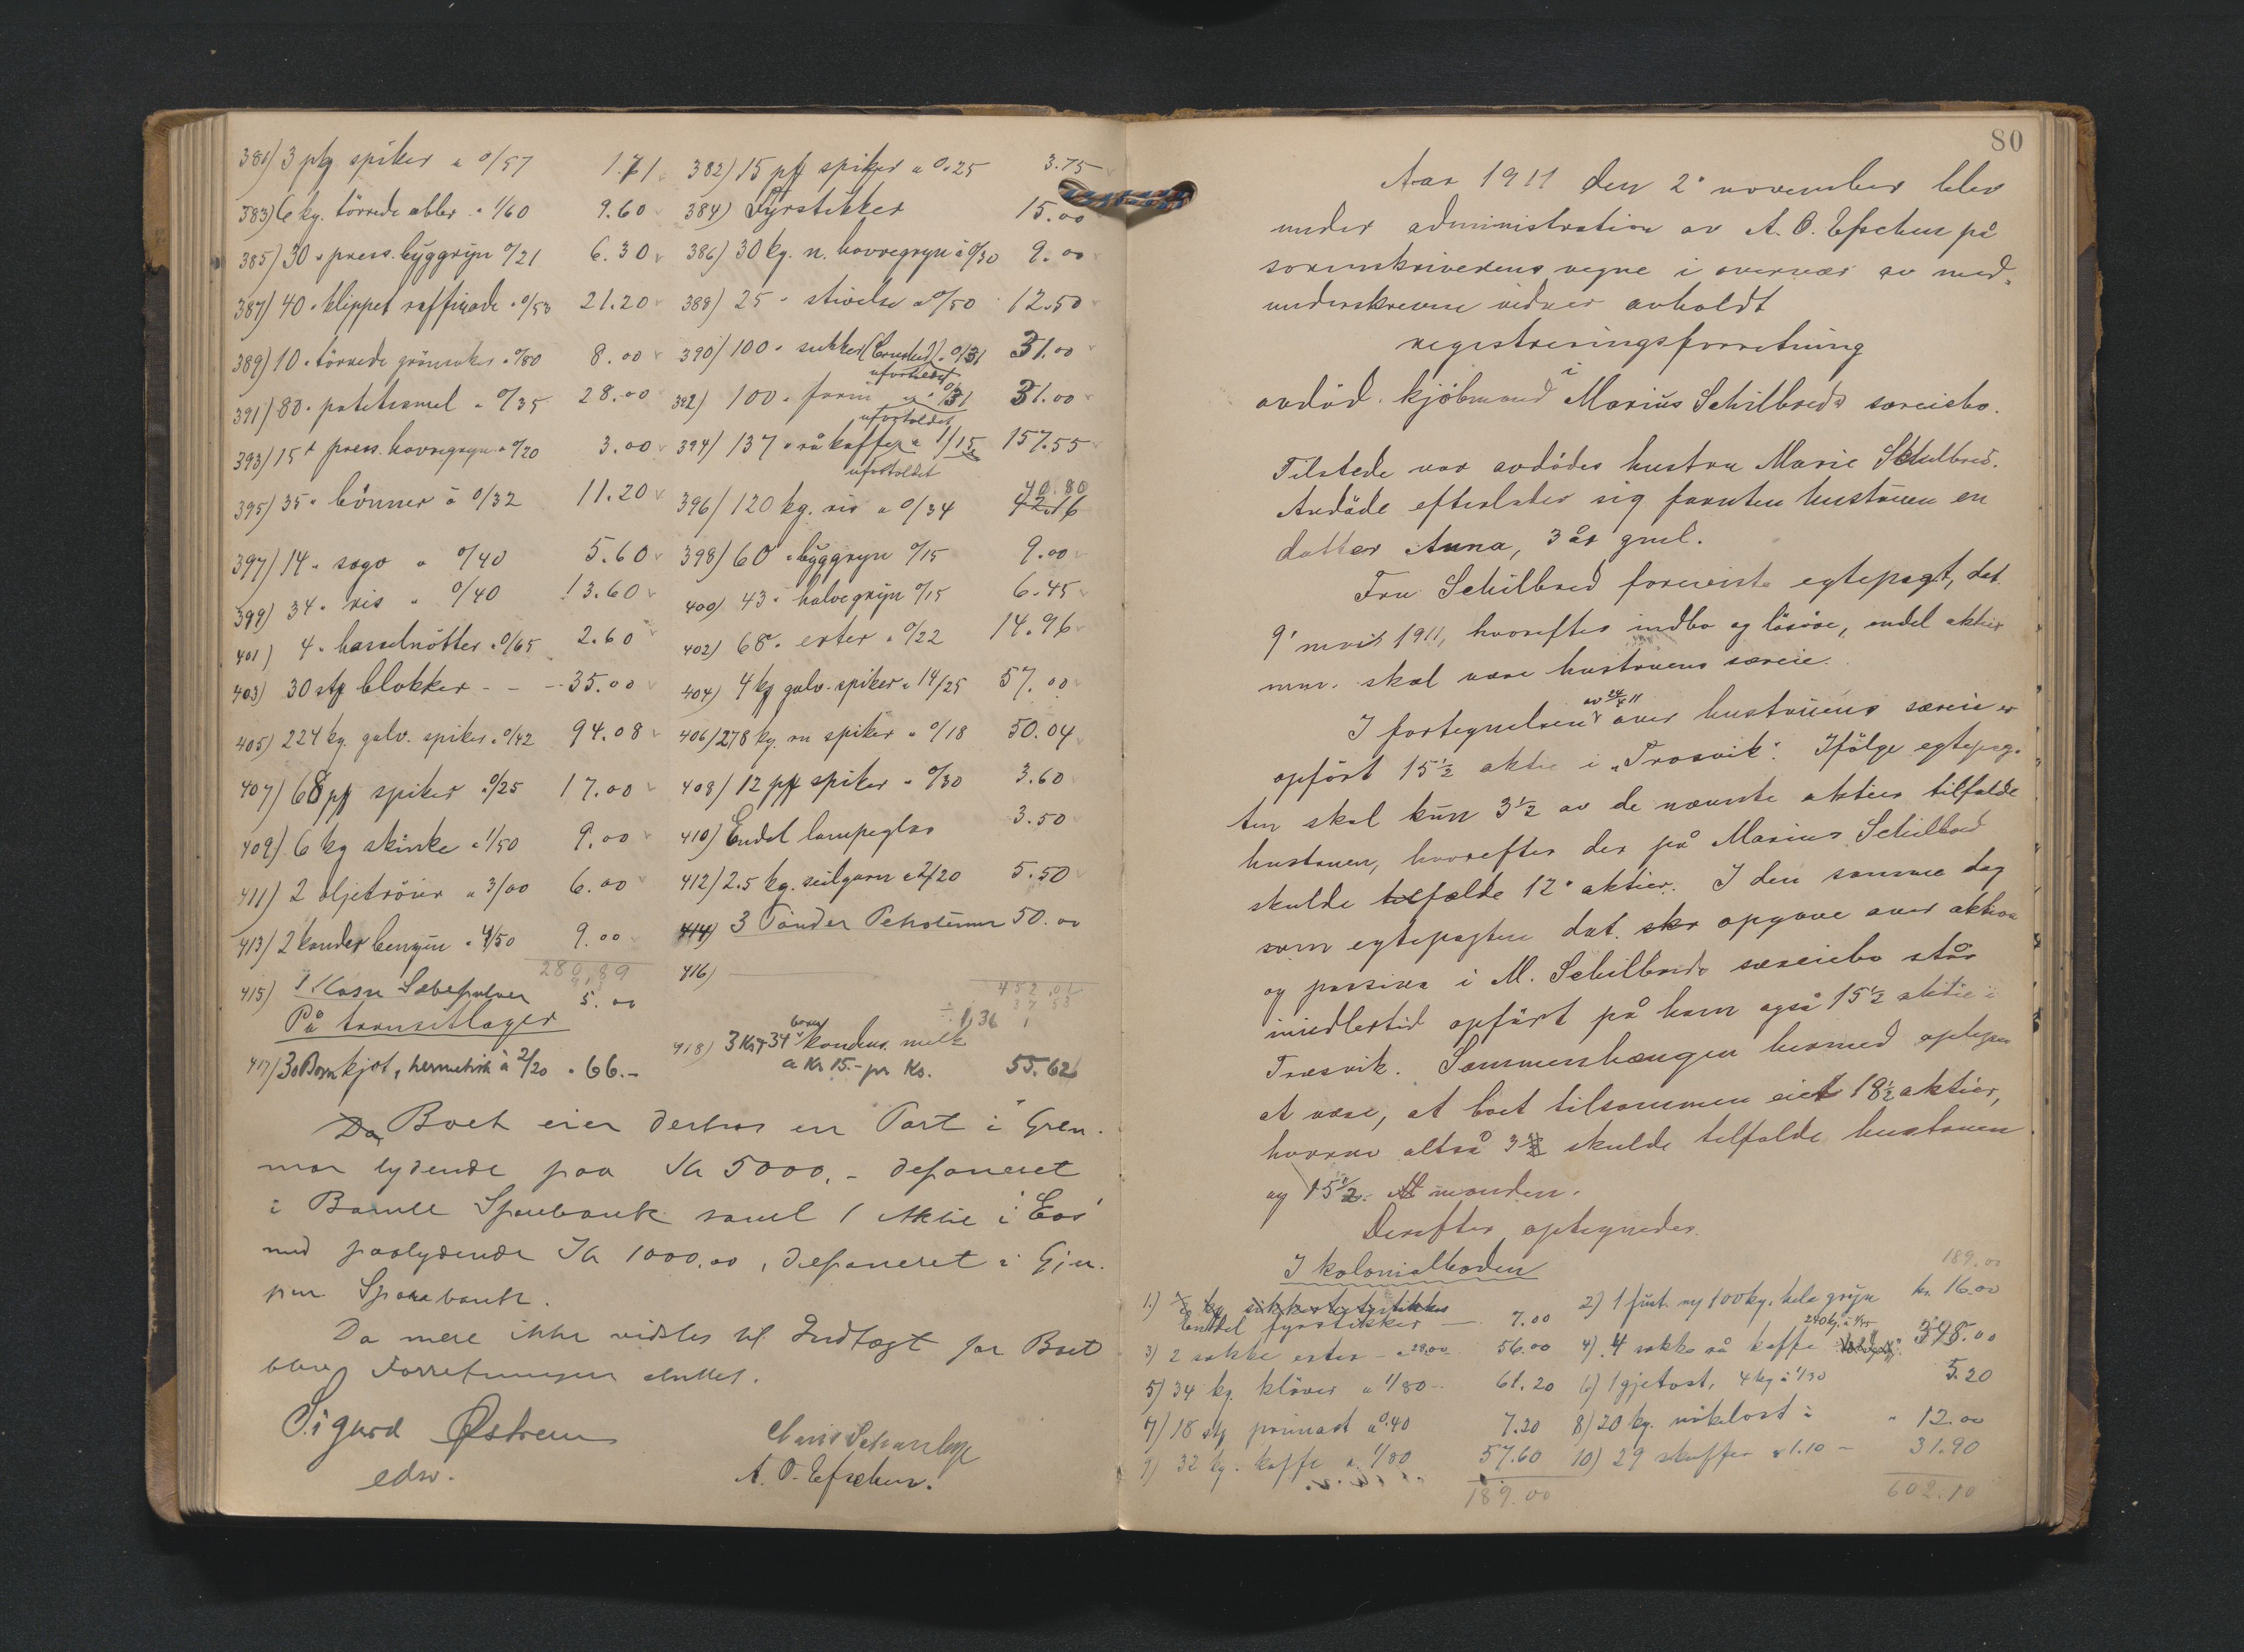 381) 3 pk spiker a 0/57 1.71 382) 15 pk spiker a 0.25 3.75
383) 6 kg. törrede æbler " 1/60 9.60 384) Fyrstikker 15.00
385) 30 " press. byggryn 0/21 6.30 386) 30 kg. n. havregryn à 0/30 9.00
387) 40 " klippet raffinade " 0/53 21.20 388) 25 " stivelse a 0/50 12.50
389) 10 " törrede grönsaker " 0/80 8.00 390) 100 " sukker (Crushed) " 0/31 31.00
ufortoldet
391) 80 " potetesmel " 0/35 28.00 392) 100 " farin " 0/31 31.00
ufortoldet
393) 15 " press. havregryn " 0/20 3.00 394) 137 " rå kaffe a 1/15 157.55
ufortoldet
395) 35 " bönner à 0/32 11.20 396) 120 kg. ris a 0/34 42.16 40.80
397) 14 " sago " 0/40 5.60 398) 60 " byggryn 0/15 9.00
399) 34 " ris " 0/40 13.60 400) 43 " halvegryn 0/15 6.45
401) 4 " hasselnötter " 0/65 2.60 402) 68 " erter " 0/22 14.96
403) 30 stk blokker - - - 35.00 404) 4 kg galv. spiker " 14/25 57.00
405) 224 kg. galv. spiker " 0/42 94.08 406) 278 kg. m spiker " 0/18 50.04
407) 68 pk spiker 0/25 17.00 408) 12 pk spiker " 0/30 3.60
409) 6 kg skinke " 1/50 9.00 410) Endel lampeglas 3.50
411) 2 oljetröier a 3/00 6.00 412) 2.5 kg. seilgarn a 2/20 5.50
413) 2 kander benzin " 4/50 9.00 414) 3 Tönder Petroleum 50.00
280.89
415) 1 Kasse Sæbepulver 5.00 416)
452.01
37 53
På transitlager
÷ 1,36
417) 30 Boxer kjöt, hermetisk à 2/20 " 66.- 418) 3 Ks + 34 boxer kondens. melk
a Kr 15.- pr Ks. 55.62
Da Boet eier deshos en Part i Gren-
mar lydende paa Kr 5000.- deponeret
i Bamle Sparebank samt 1 Aktie i "Eos"
med paalydende Kr 1000.00, deponeret i Gjer-
pen Sparebank.
Da mere ikke vidstes til Indtægt for Boet
blev Forretningen sluttet.
Sigurd Østrem
edsv.
A. O. Efschen.
80
Aar 1911 den 2' november blev
under administration av A. O. Efschen på
sorenskriverens vegne i overvær av med-
underskrevne vidner avholdt
registreringsforretning
i
avdöd. kjöbmand Marius Schilbreds særeisbo.
Tilstede var avdödes hustru Marie Schilbred.
Avdöde efterlater sig foruten hustruen en
datter Anna, 3 år gml.
Fru Schilbred foreviste egtepagt, dat.
9' mars 1911, hvorefter indbo og lösöre, endel aktier
mm. skal være hustruens særeie.
av 24/4 11
I fortegnelsen over hustruens særeie er
opfört 15 1/2 aktie i "Trosvik". Ifölge egtepag-
ten skal kun 3 1/2 av de nævnte aktier tilfalde
hustruen, hvorefter der på Marius Schilbred
skulde tilfalde 12 aktier. I den samme dag
som egtepagten dat. opgave over aktiva
og passiva i M. Schilbreds særeiebo står
imidlertid opfört på ham også 15 1/2 aktie i
Trosvik. Sammenhængen hermed oplyses
at være, at boet tilsammen eiet 18 1/2 aktier,
hvorav altså 3 skulde tilfalde hustruen
og 15 1/2 manden.
Derefter optegnedes.
I kolonialboden
189.00
1.) Endel fyrstikker 7.00 2) 1 fust. ny 100 kg. hele gryn kr. 16.00
240 kg. à 1/45
3) 2 sække erter - a 28.00 56.00 4) 4 sække rå kaffe 348.00
5) 34 kg. klöver a 1/80 61.20 6) 1 gjetost, 4 kg à 1/30 5.20
7) 18 stk primost a 0.40 7.20 8) 20 kg. nökelost à " 12.00
9) 32 kg. kaffe a 1/80 57.60 10) 29 skuffer a 1.10 - 31.90
189.00 602.10